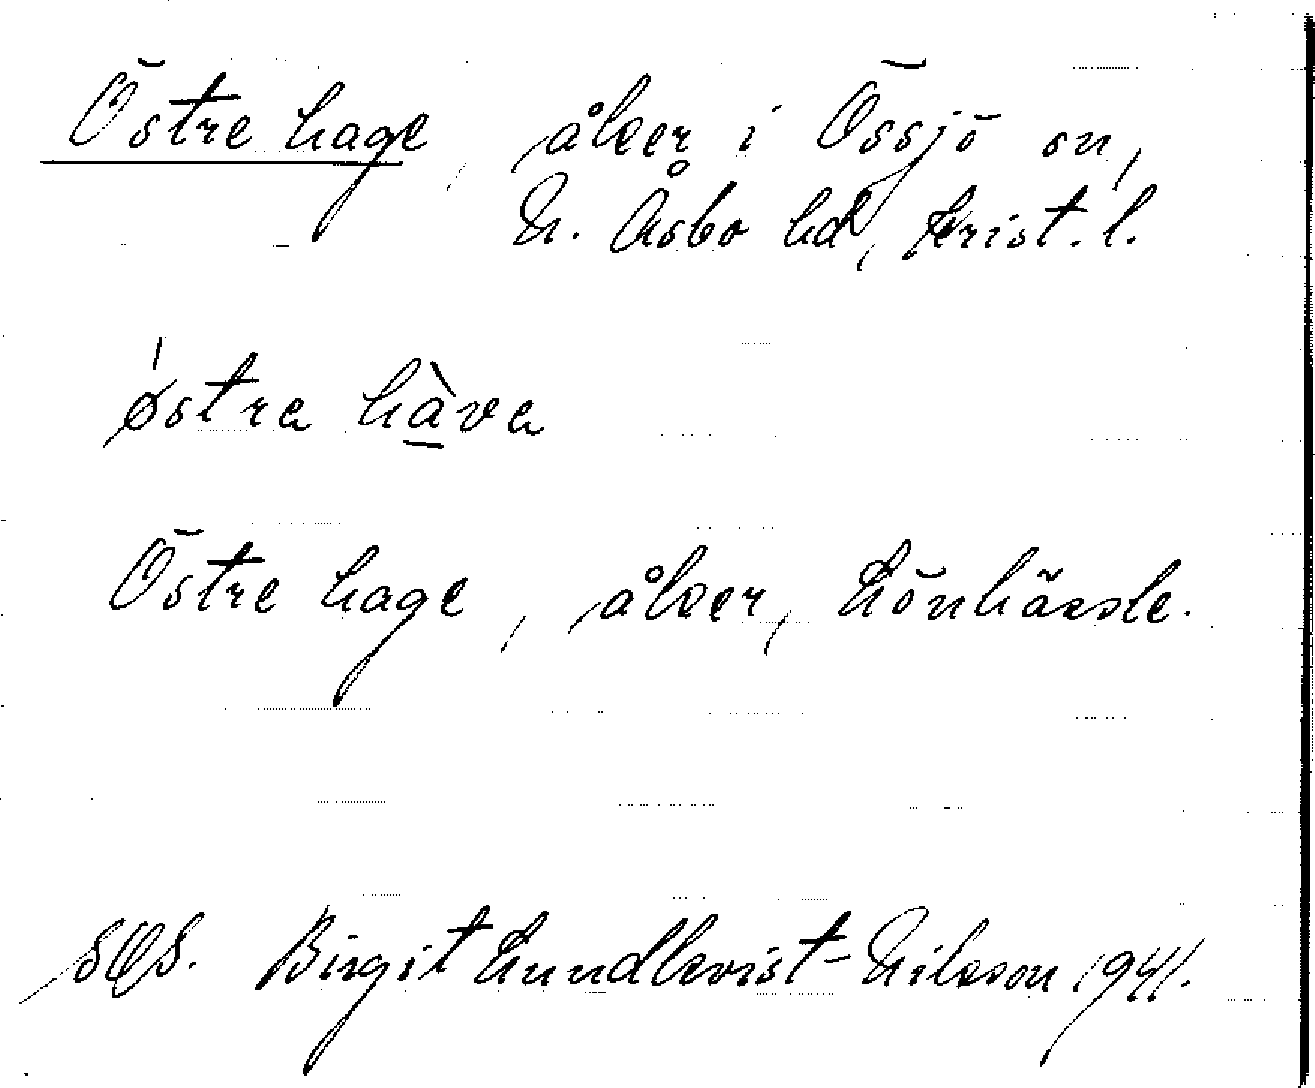 Östre hage, åker i Össjö sn,
N. Åsbo hd, Krist. l.
østra hàva
Östre hage, åker, Lönhässle.
SOS. Birgit Lundkvist-Nilsson 1941.